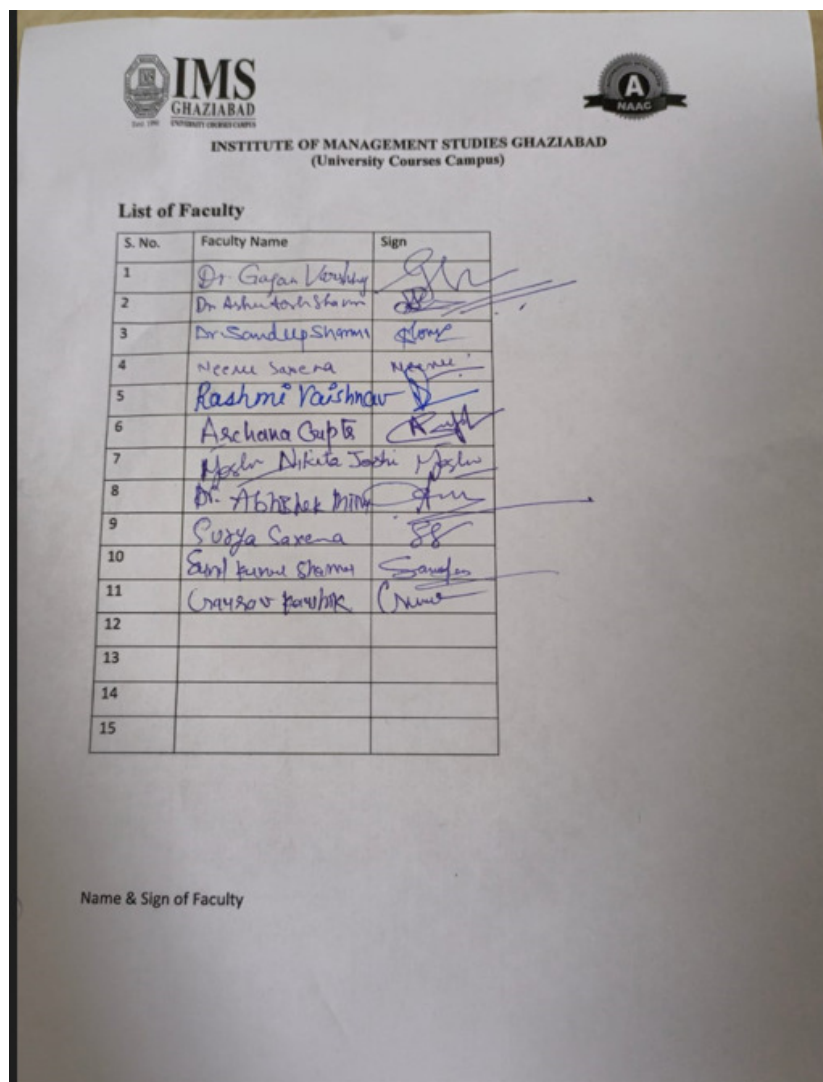 IMS
GHAZIABAD
UNIVERSITY COURSES CAMPUS
A
NAAC
INSTITUTE OF MANAGEMENT STUDIES GHAZIABAD
(University Courses Campus)
List of Faculty
S. No. Faculty Name Sign
1 Dr. Gagan Varshney
2 Dr Ashutosh Sharma
3 Dr. Sandeep Sharma
4 Neenu Saxena Neenu
5 Rashmi Vaishnav
6 Archana Gupta
7 Nikita Joshi
8 Dr. Abhishek
9 Surya Saxena SS
10 Sunil Kumar Sharma
11 Gaurav Kaushik
12
13
14
15
Name & Sign of Faculty